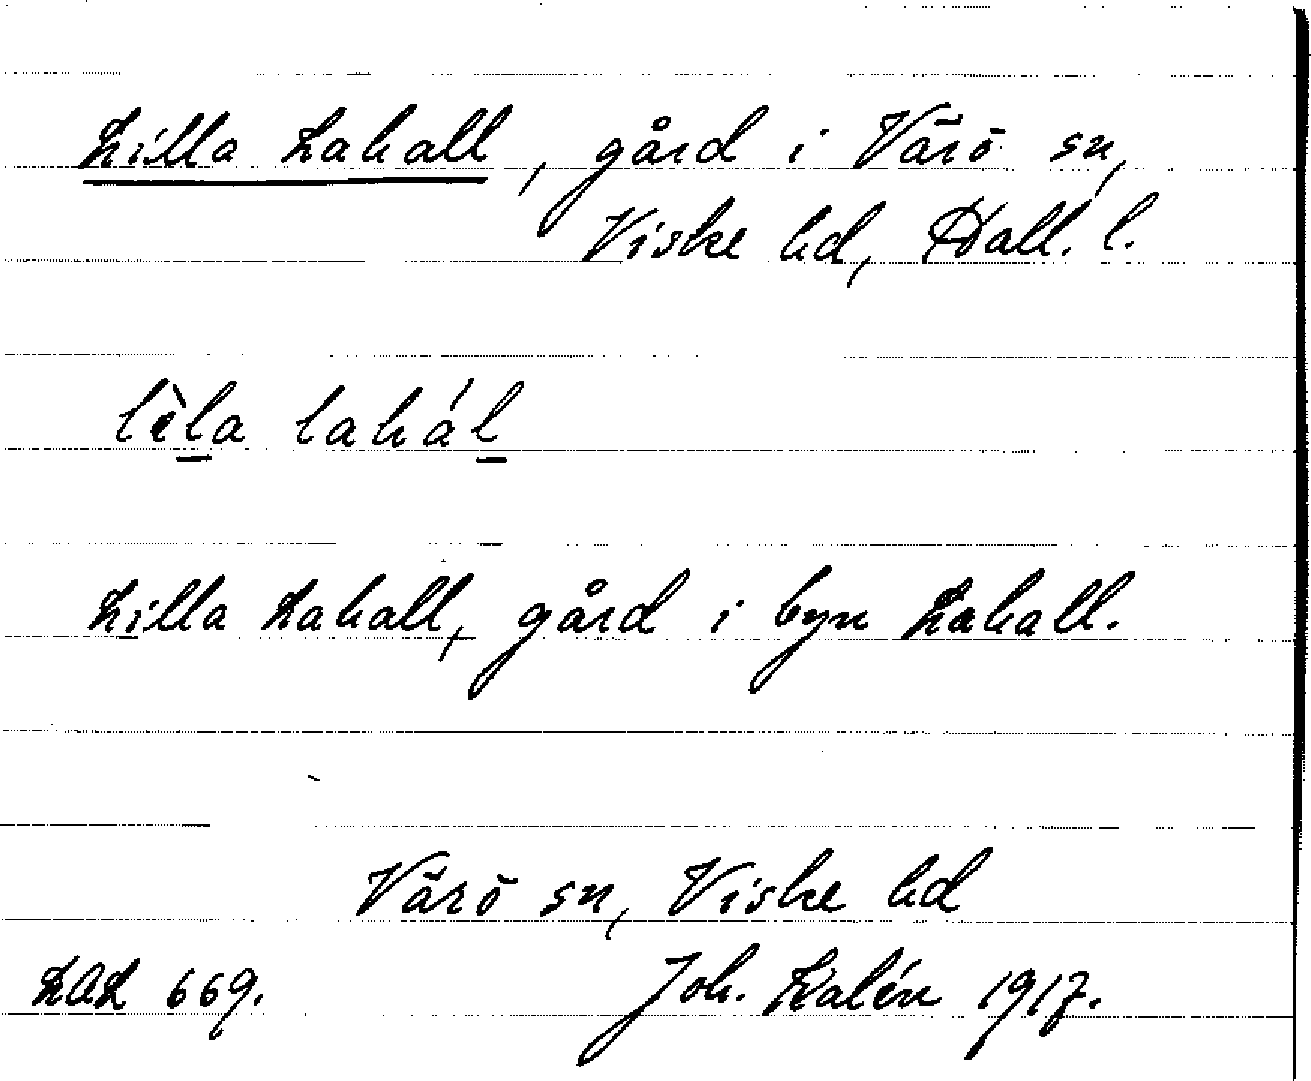 Lilla Lahall, gård i Värö sn,
Viske hd, Hall. l.
lèla lahál
Lilla Lahall, gård i byn Lahall.
Värö sn, Viske hd
LAL 669.
Joh. Kalén 1917.